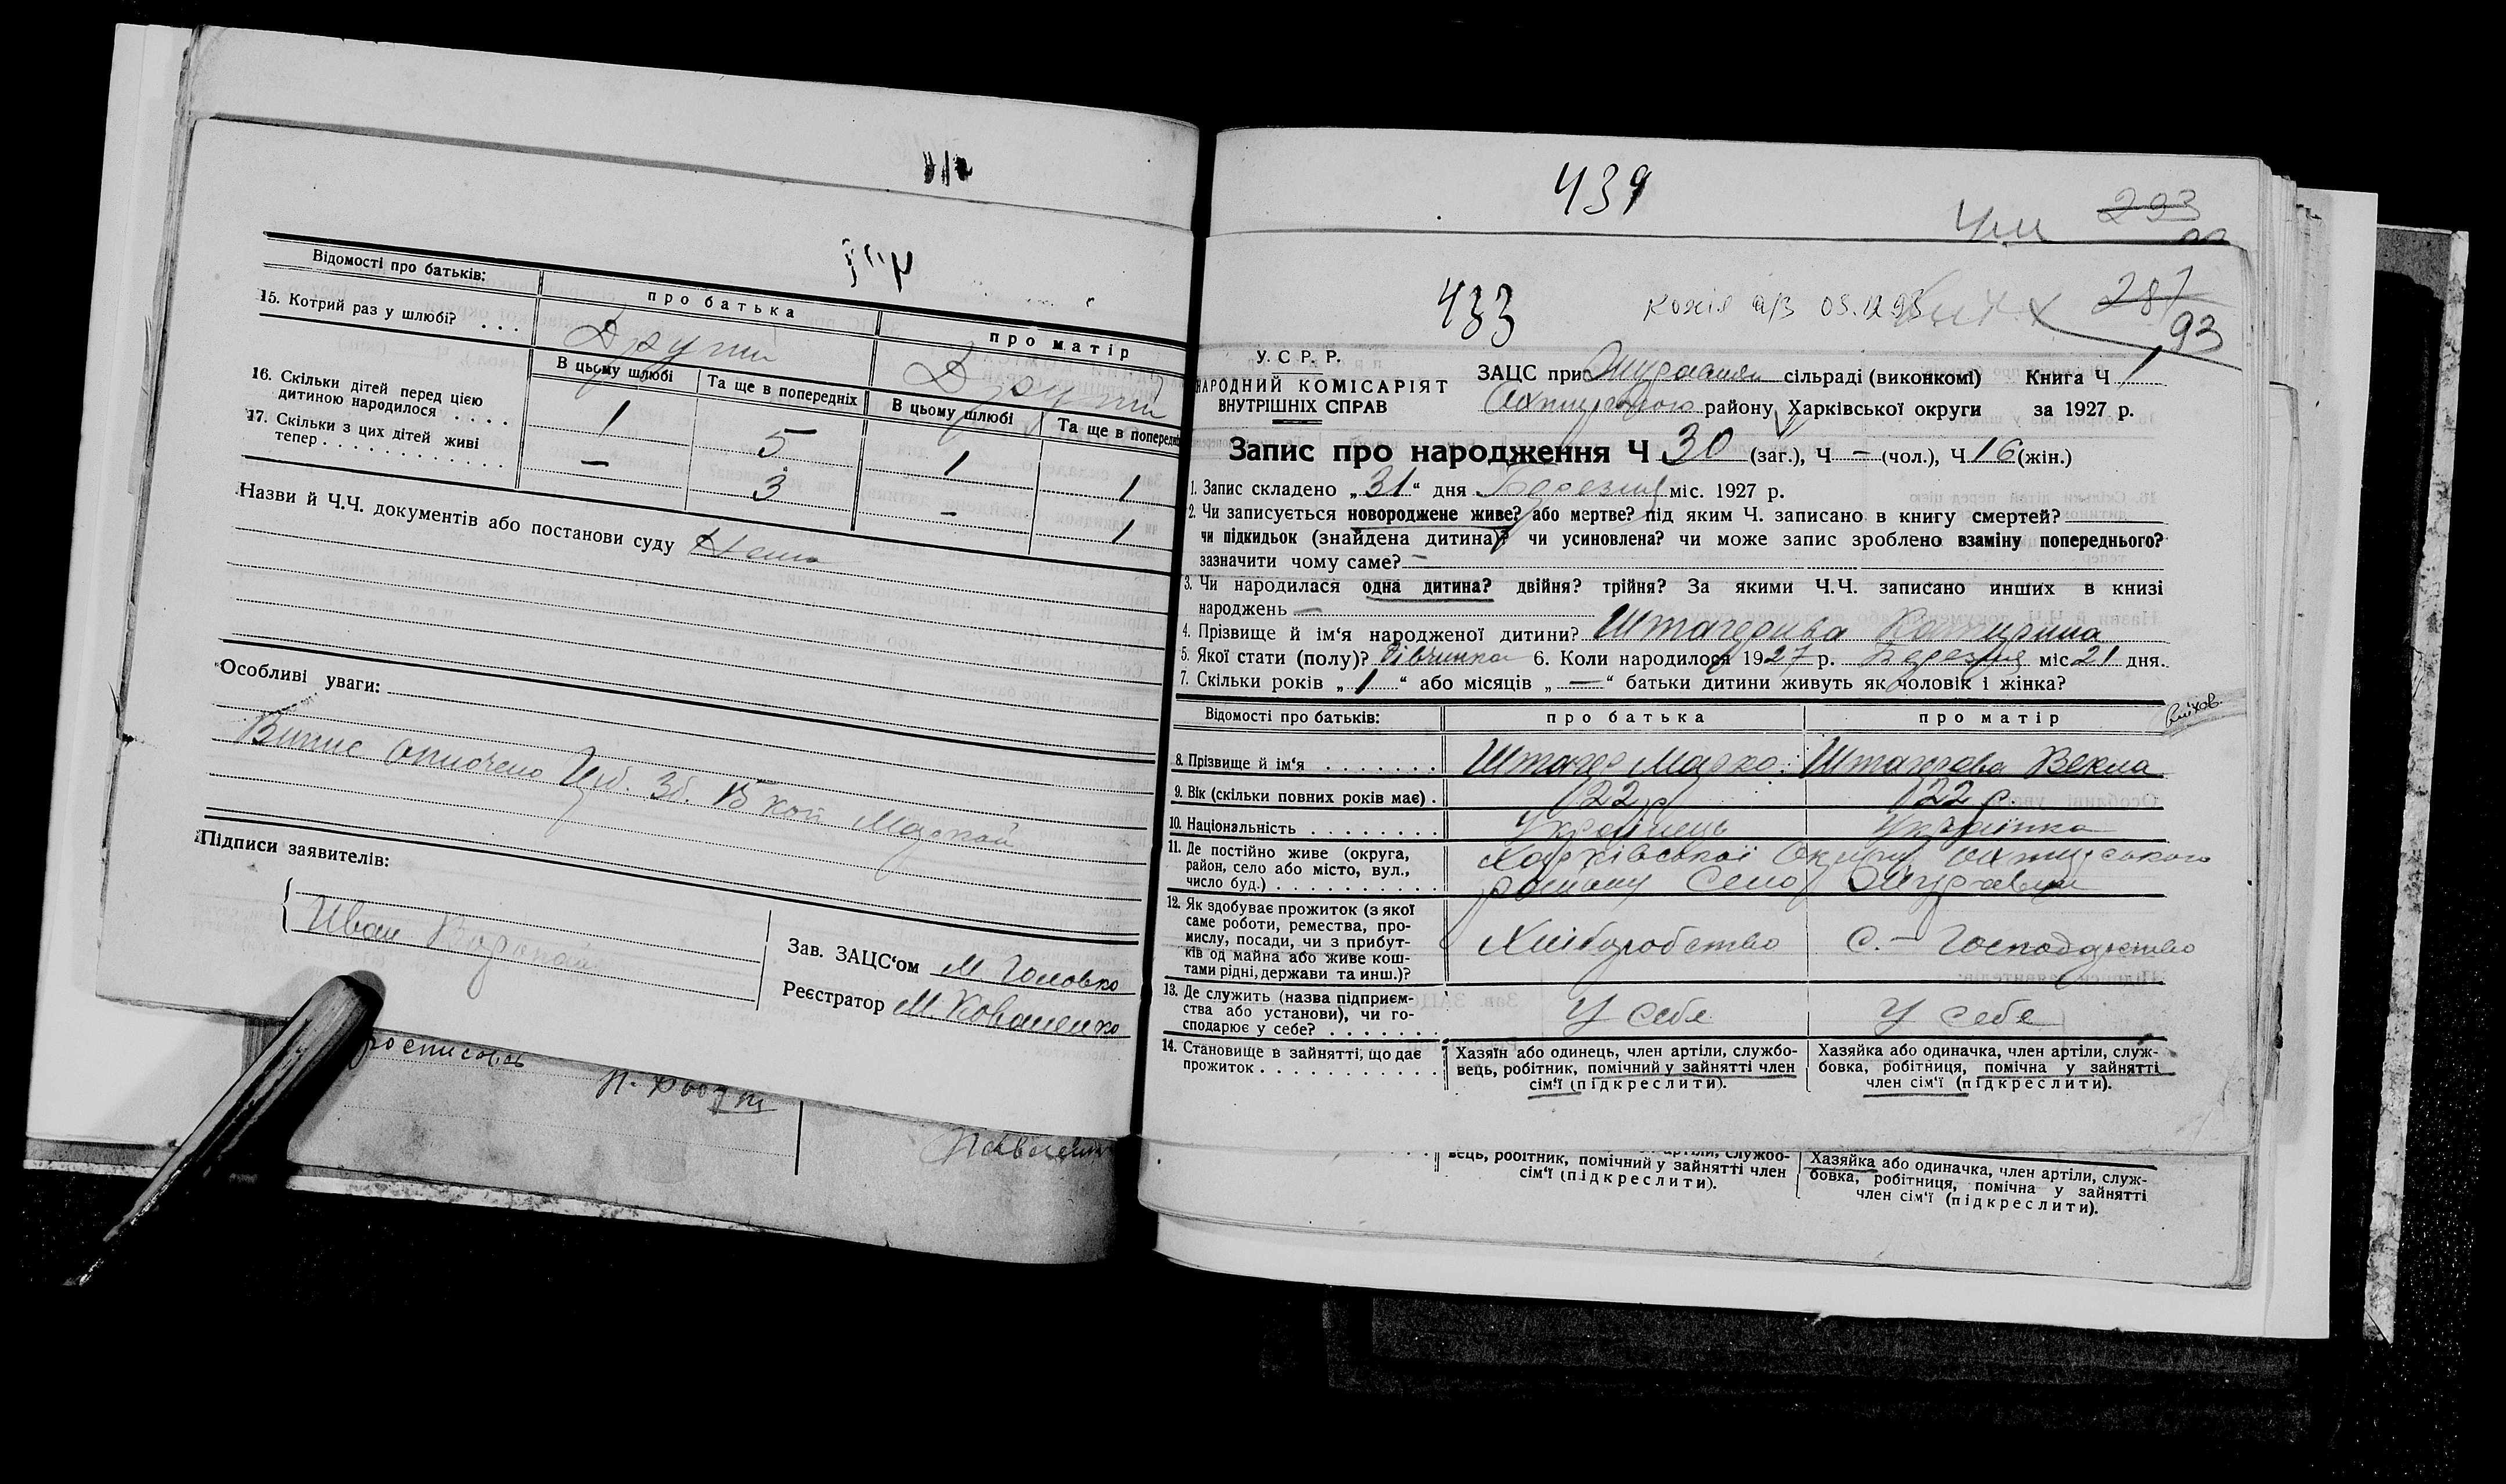 Відомості про батьків:
про батька
про матір
15. Котрий раз у шлюбі? . . .
Другий
Другий
В цьому шлюбі
Та ще в попередніх
В цьому шлюбі
Та ще в попередніх
16. Скільки дітей перед цією
дитиною народилося . . . .
1 5 1 1
17. Скільки з цих дітей живі
тепер . . . . . . . . . . . .
— 3 - 1
Назви й Ч.Ч. документів або постанови суду Нема
Особливі уваги:
Випис 3б. кой
Підписи заявителів:
Иван
Зав. ЗАЦС‘ом М Головко
Реєстратор М Коваленко
439
293
433
копія а/з
287
93
У. С. Р. Р.
НАРОДНИЙ КОМІСАРІЯТ
ВНУТРІШНІХ СПРАВ
ЗАЦС при сільраді (виконкомі) Книга Ч 1
району Харківської округи за 1927 р.
Запис про народження Ч 30 (заг.), Ч — (чол.), Ч 16 (жін.)
1. Запис складено „31“ дня Березня міс. 1927 р.
2. Чи записується новороджене живе? або мертве? під яким Ч. записано в книгу смертей?
чи підкидьок (знайдена дитина)? чи усиновлена? чи може запис зроблено взаміну попереднього?
зазначити чому саме? —
3. Чи народилася одна дитина? двійня? трійня? За якими Ч.Ч. записано инших в книзі
народжень —
4. Прізвище й ім‘я народженої дитини? Катерина
5. Якої стати (полу)? Дівчинка 6. Коли народилося 1927 р. Березня міс 21 дня.
7. Скільки років „ 1 “ або місяців „ — “ батьки дитини живуть як чоловік і жінка?
Відомості про батьків:
про батька
про матір
8. Прізвище й ім‘я . . . . . . .
Марко
Векла
9. Вік (скільки повних років має) .
22 р
22 р.
10. Національність . . . . . . . .
Українець
Українка
11. Де постійно живе (округа,
район, село або місто, вул.,
число буд.) . . . . . . . . . .
Харківської Округи
району Село
12. Як здобуває прожиток (з якої
саме роботи, ремества, про-
мислу, посади, чи з прибут-
ків од майна або живе кош-
тами рідні, держави та инш.)?
Хліборобство
С.- Господарство
13. Де служить (назва підприєм-
ства або установи), чи го-
сподарює у себе? . . . . . . .
У себе
У себе
14. Становище в зайнятті, що дає
прожиток . . . . . . . . . . .
Хазяїн або одинець, член артіли, службо-
вець, робітник, помічний у зайнятті член
сім‘ї (підкреслити).
Хазяйка або одиначка, член артіли, служ-
бовка, робітниця, помічна у зайнятті
член сім‘ї (підкреслити).
вець, робітник, помічний у зайнятті член
сім‘ї (підкреслити).
Хазяйка або одиначка, член артіли, служ-
бовка, робітниця, помічна у зайнятті
член сім‘ї (підкреслити).